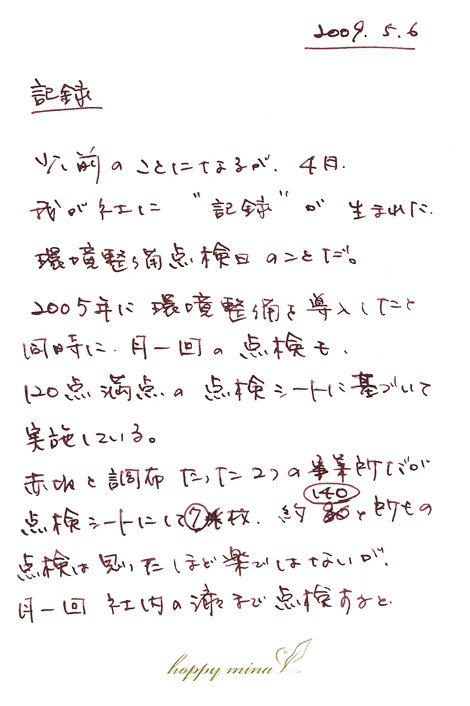 2009.5.6
記録
少し前のことになるが、4月.
我が社に “記録” が 生まれた.
環境整備点検日のことだ。
2005年に 環境整備を導入したと
同時に. 月一回の点検を.
120点満点の 点検シートに基づいて
実施している。
赤坂と調布 たった2つの事業所だが
点検シートにして⑦枚. 約 140ヶ所もの
点検は思ったほど楽ではないが.
月一回 社内の隅々まで点検すると.
happy mina